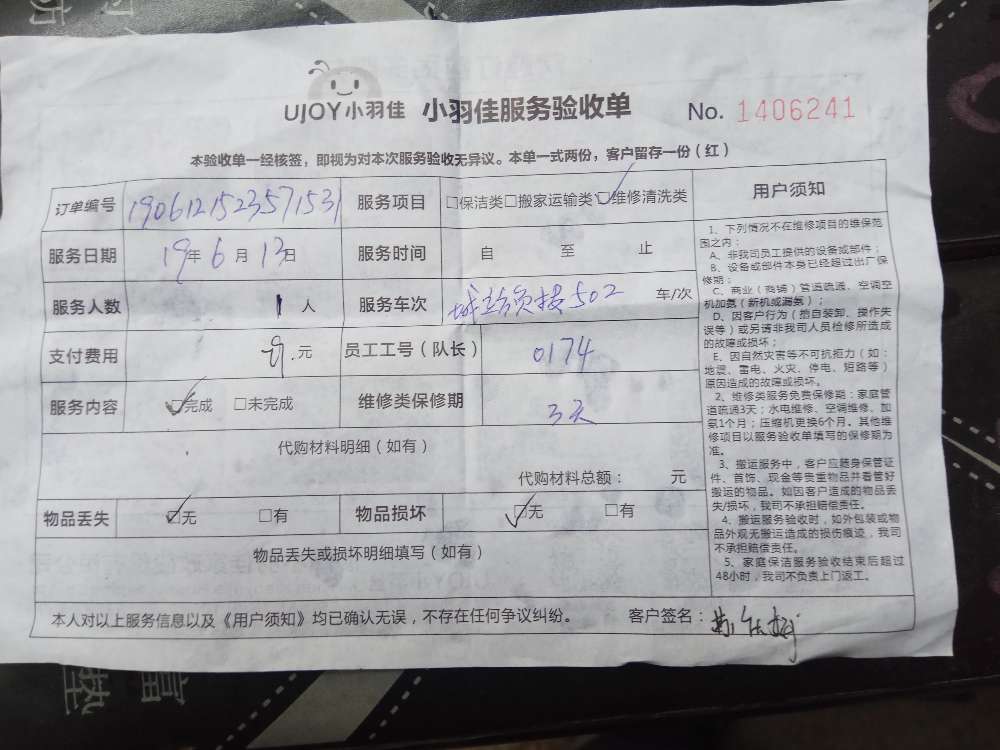 UJOY小羽佳 小羽佳服务验收单 No. 1406241
本验收单一经核签，即视为对本次服务验收无异议。本单一式两份，客户留存一份（红）
订单编号 1906121523571531 服务项目 □保洁类□搬家运输类☑维修清洗类
服务日期 19年6月13日 服务时间 自 至 止
服务人数 1人 服务车次 502 车/次
支付费用 元 员工工号（队长） 0174
服务内容 ☑完成 □未完成 维修类保修期 3天
代购材料明细（如有）
代购材料总额： 元
物品丢失 ☑无 □有 物品损坏 ☑无 □有
物品丢失或损坏明细填写（如有）
用户须知
1、下列情况不在维修项目的维保范
围之内：
A、非我司员工提供的设备或部件；
B、设备或部件本身已经超过出厂保
修期；
C、商业（商铺）管道疏通、空调空
机加氨（新机或漏氨）；
D、因客户行为（擅自装卸、操作失
误等）或另请非我司人员检修所造成
的故障或损坏；
E、因自然灾害等不可抗拒力（如：
地震、雷电、火灾、停电、短路等）
原因造成的故障或损坏。
2、维修类服务免费保修期：家庭管
道疏通3天；水电维修、空调维修、加
氨1个月；压缩机更换6个月。其他维
修项目以服务验收单填写的保修期为
准。
3、搬运服务中，客户应随身保管证
件、首饰、现金等贵重物品并看管好
搬运的物品。如因客户造成的物品丢
失/损坏，我司不承担赔偿责任。
4、搬运服务验收时，如外包装或物
品外观无搬运造成的损伤痕迹，我司
不承担赔偿责任。
5、家庭保洁服务验收结束后超过
48小时，我司不负责上门返工。
本人对以上服务信息以及《用户须知》均已确认无误，不存在任何争议纠纷。 客户签名：